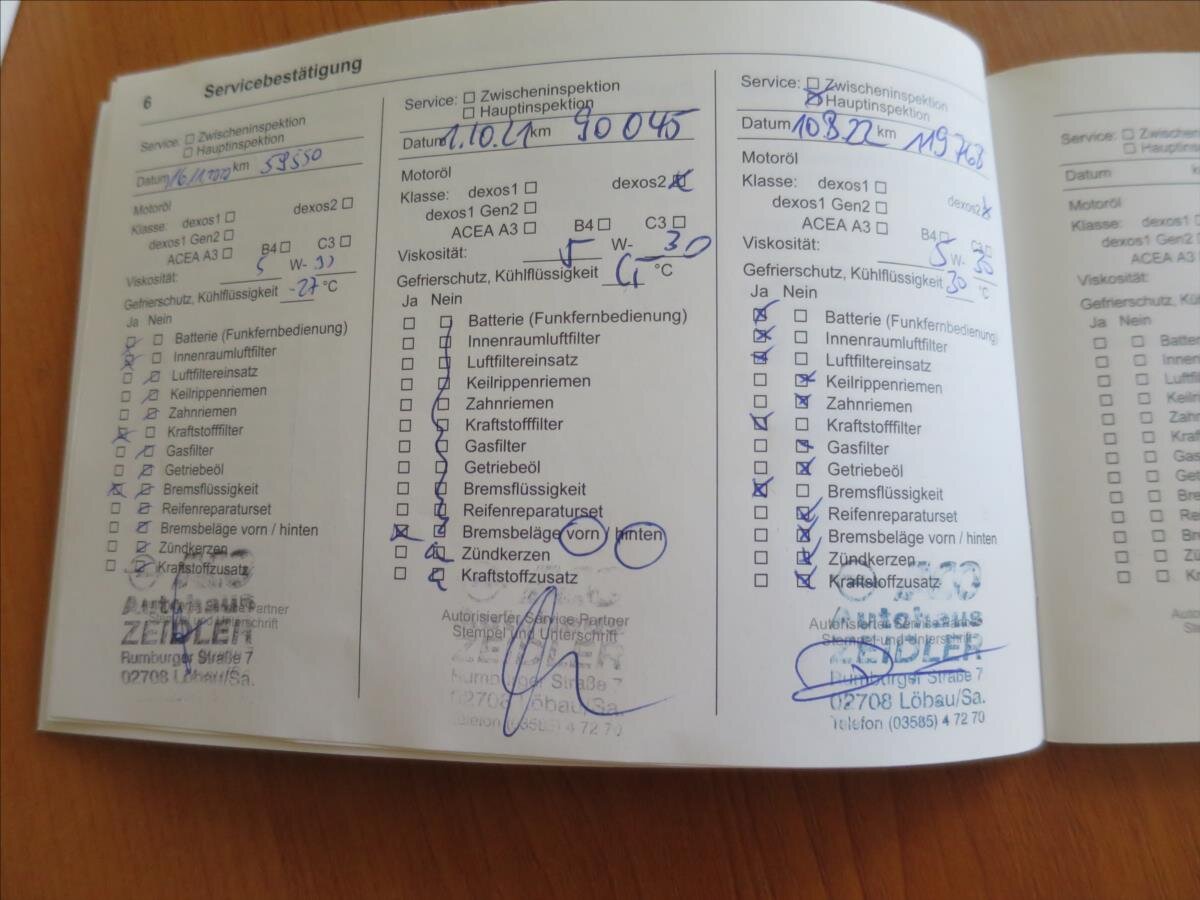 6 Servicebestätigung
Service: Zwischeninspektion
Hauptinspektion
Datum km 59550
Motoröl
Klasse: dexos1 dexos2
dexos1 Gen2
ACEA A3 B4 C3
Viskosität: 5 W-
Gefrierschutz, Kühlflüssigkeit -27 °C
Ja Nein
Batterie (Funkfernbedienung)
Innenraumluftfilter
Luftfiltereinsatz
Keilrippenriemen
Zahnriemen
Kraftstofffilter
Gasfilter
Getriebeöl
Bremsflüssigkeit
Reifenreparaturset
Bremsbeläge vorn / hinten
Zündkerzen
Kraftstoffzusatz
Autohaus
ZEIDLER
Rumburger Straße 7
02708 Löbau/Sa.
Service: Zwischeninspektion
Hauptinspektion
Datum 1.10.21 km 90045
Motoröl
Klasse: dexos1 dexos2
dexos1 Gen2
ACEA A3 B4 C3
Viskosität: 5 W- 30
Gefrierschutz, Kühlflüssigkeit °C
Ja Nein
Batterie (Funkfernbedienung)
Innenraumluftfilter
Luftfiltereinsatz
Keilrippenriemen
Zahnriemen
Kraftstofffilter
Gasfilter
Getriebeöl
Bremsflüssigkeit
Reifenreparaturset
Bremsbeläge vorn / hinten
Zündkerzen
Kraftstoffzusatz
Autorisierter Service Partner
Stempel und Unterschrift
ZEIDLER
Rumburger Straße 7
02708 Löbau/Sa.
Telefon (03585) 4 72 70
Service: Zwischeninspektion
Hauptinspektion
Datum 10.8.22 km 119768
Motoröl
Klasse: dexos1 dexos2
dexos1 Gen2
ACEA A3 B4 C3
Viskosität: 5 W- 30
Gefrierschutz, Kühlflüssigkeit 30 °C
Ja Nein
Batterie (Funkfernbedienung)
Innenraumluftfilter
Luftfiltereinsatz
Keilrippenriemen
Zahnriemen
Kraftstofffilter
Gasfilter
Getriebeöl
Bremsflüssigkeit
Reifenreparaturset
Bremsbeläge vorn / hinten
Zündkerzen
Kraftstoffzusatz
Autohaus
Stempel und Unterschrift
ZEIDLER
Rumburger Straße 7
02708 Löbau/Sa.
Telefon (03585) 4 72 70
Service:
Datum
Motoröl
Klasse: dexos1
dexos1 Gen2
ACEA A3
Viskosität:
Ja Nein